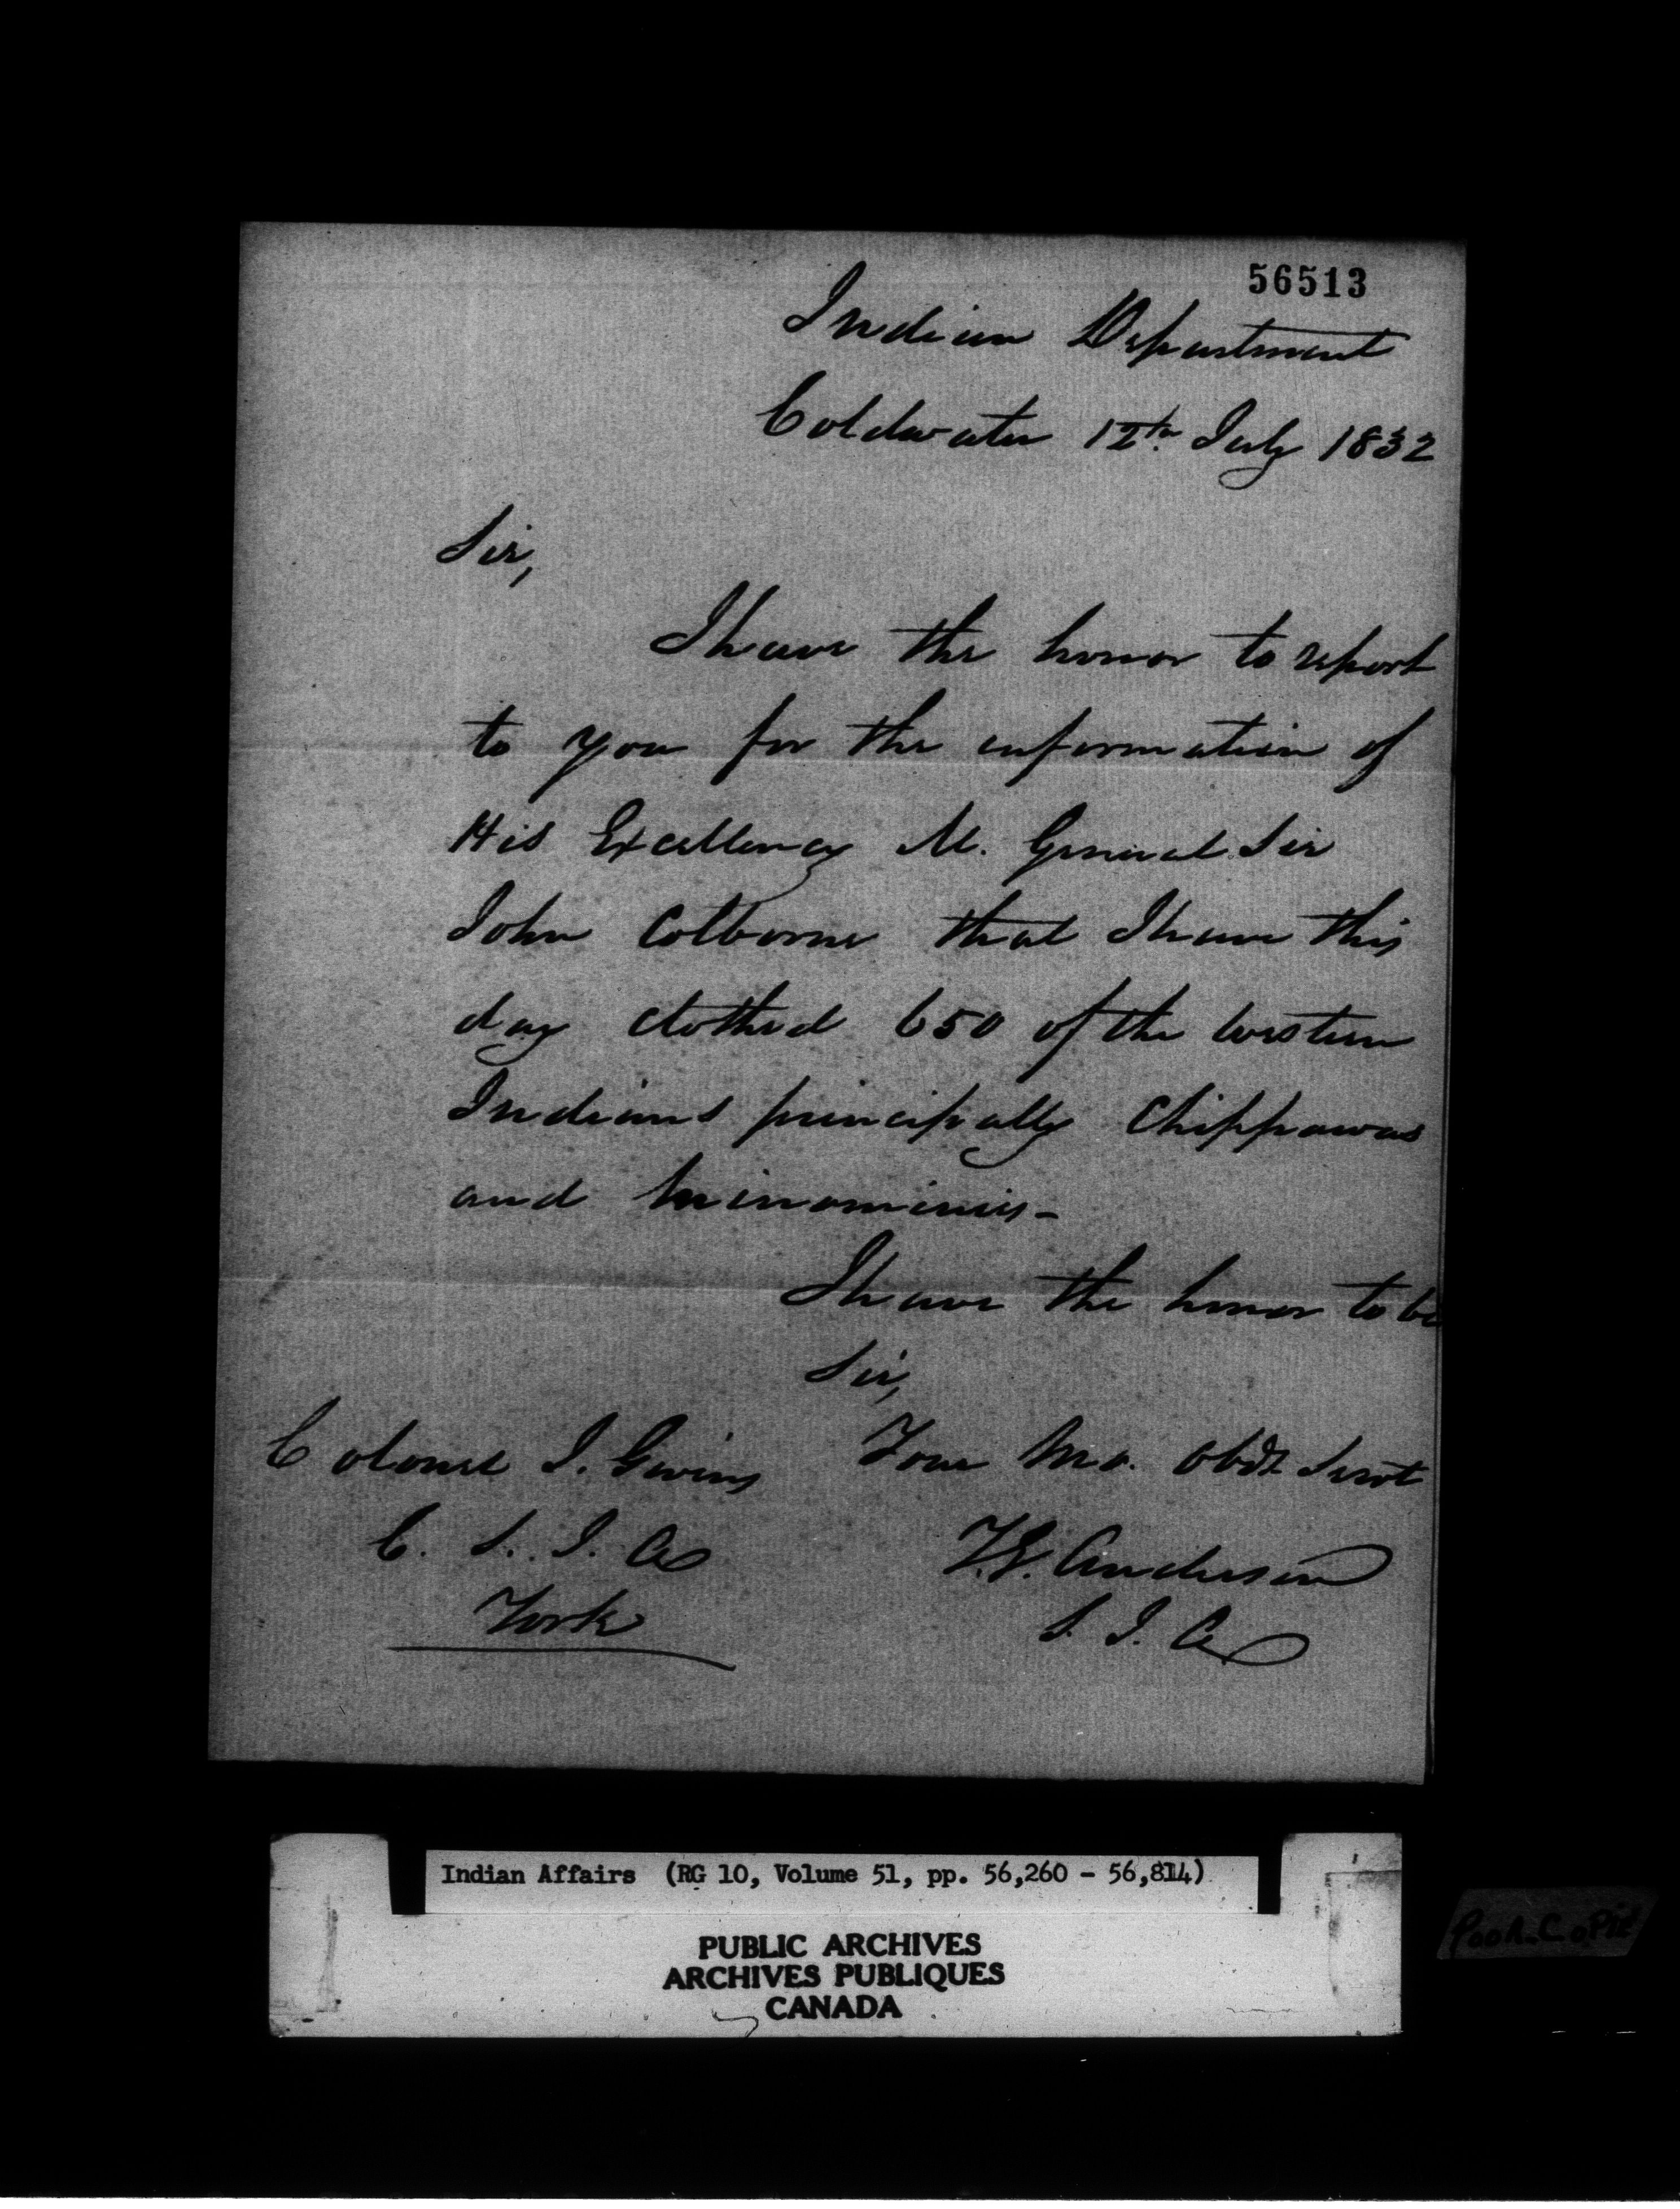 56513
Indian Department
Coldwater 12th July 1832
Sir,
I have the honor to report
to you for the information of
His Excellency M. General Sir
John Colborne that I have this
day clothed 650 of the western
Indians principally Chippawas
and Minominies -
I have the honor to be
Sir,
Your Mo. Obdt Servt
T.G. Anderson
S. I. A
Colonel J. Givins
C. S. I. A
York
Indian Affairs (RG 10, Volume 51, pp. 56,260 - 56,814)
PUBLIC ARCHIVES
ARCHIVES PUBLIQUES
CANADA
Poor Copie